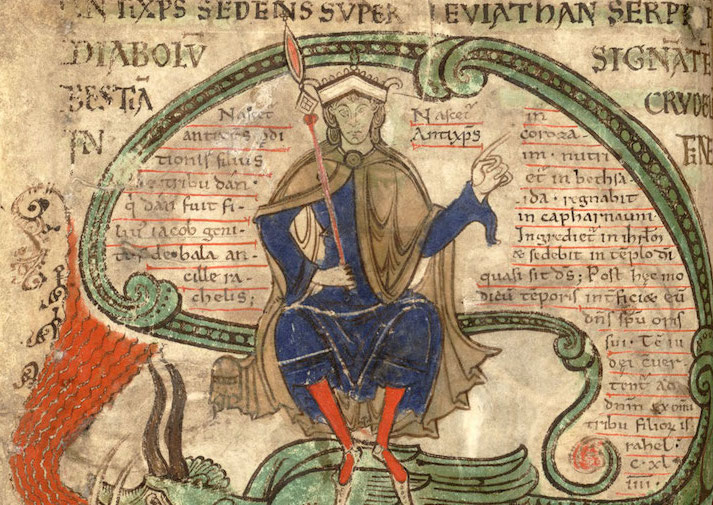 ANTIXP̄S SEDENS SUPER LEVIATHAN SERP
DIABOLŪ SIGNĀTĒ
BESTIĀ CRUDEL
IN FINE
Nascet
antixp̄s ꝑdi
tionis filius
de tribu dan ·
q̄ dan fuit fi-
liu᷒ iacob geni-
tus de bala an-
cille ra-
chelis ;
Nascet᷒
Antixp̄s
in
coroza-
im · nutri
et᷒ in bethsa-
ida · regnabit
in capharnaum ·
Ingrediet᷒ in ihrl̄m
& sedebit in teplo dī
quasi sit ds̄ ; Post hec mo
dicū teporis int̄ficiæ eū
dn̄s spū oris
sui · Te iu
dei cuer-
tent ad
dnm̄ ex om̄i
tribu filior is
rahel ·
c · xl ·
iiii ·